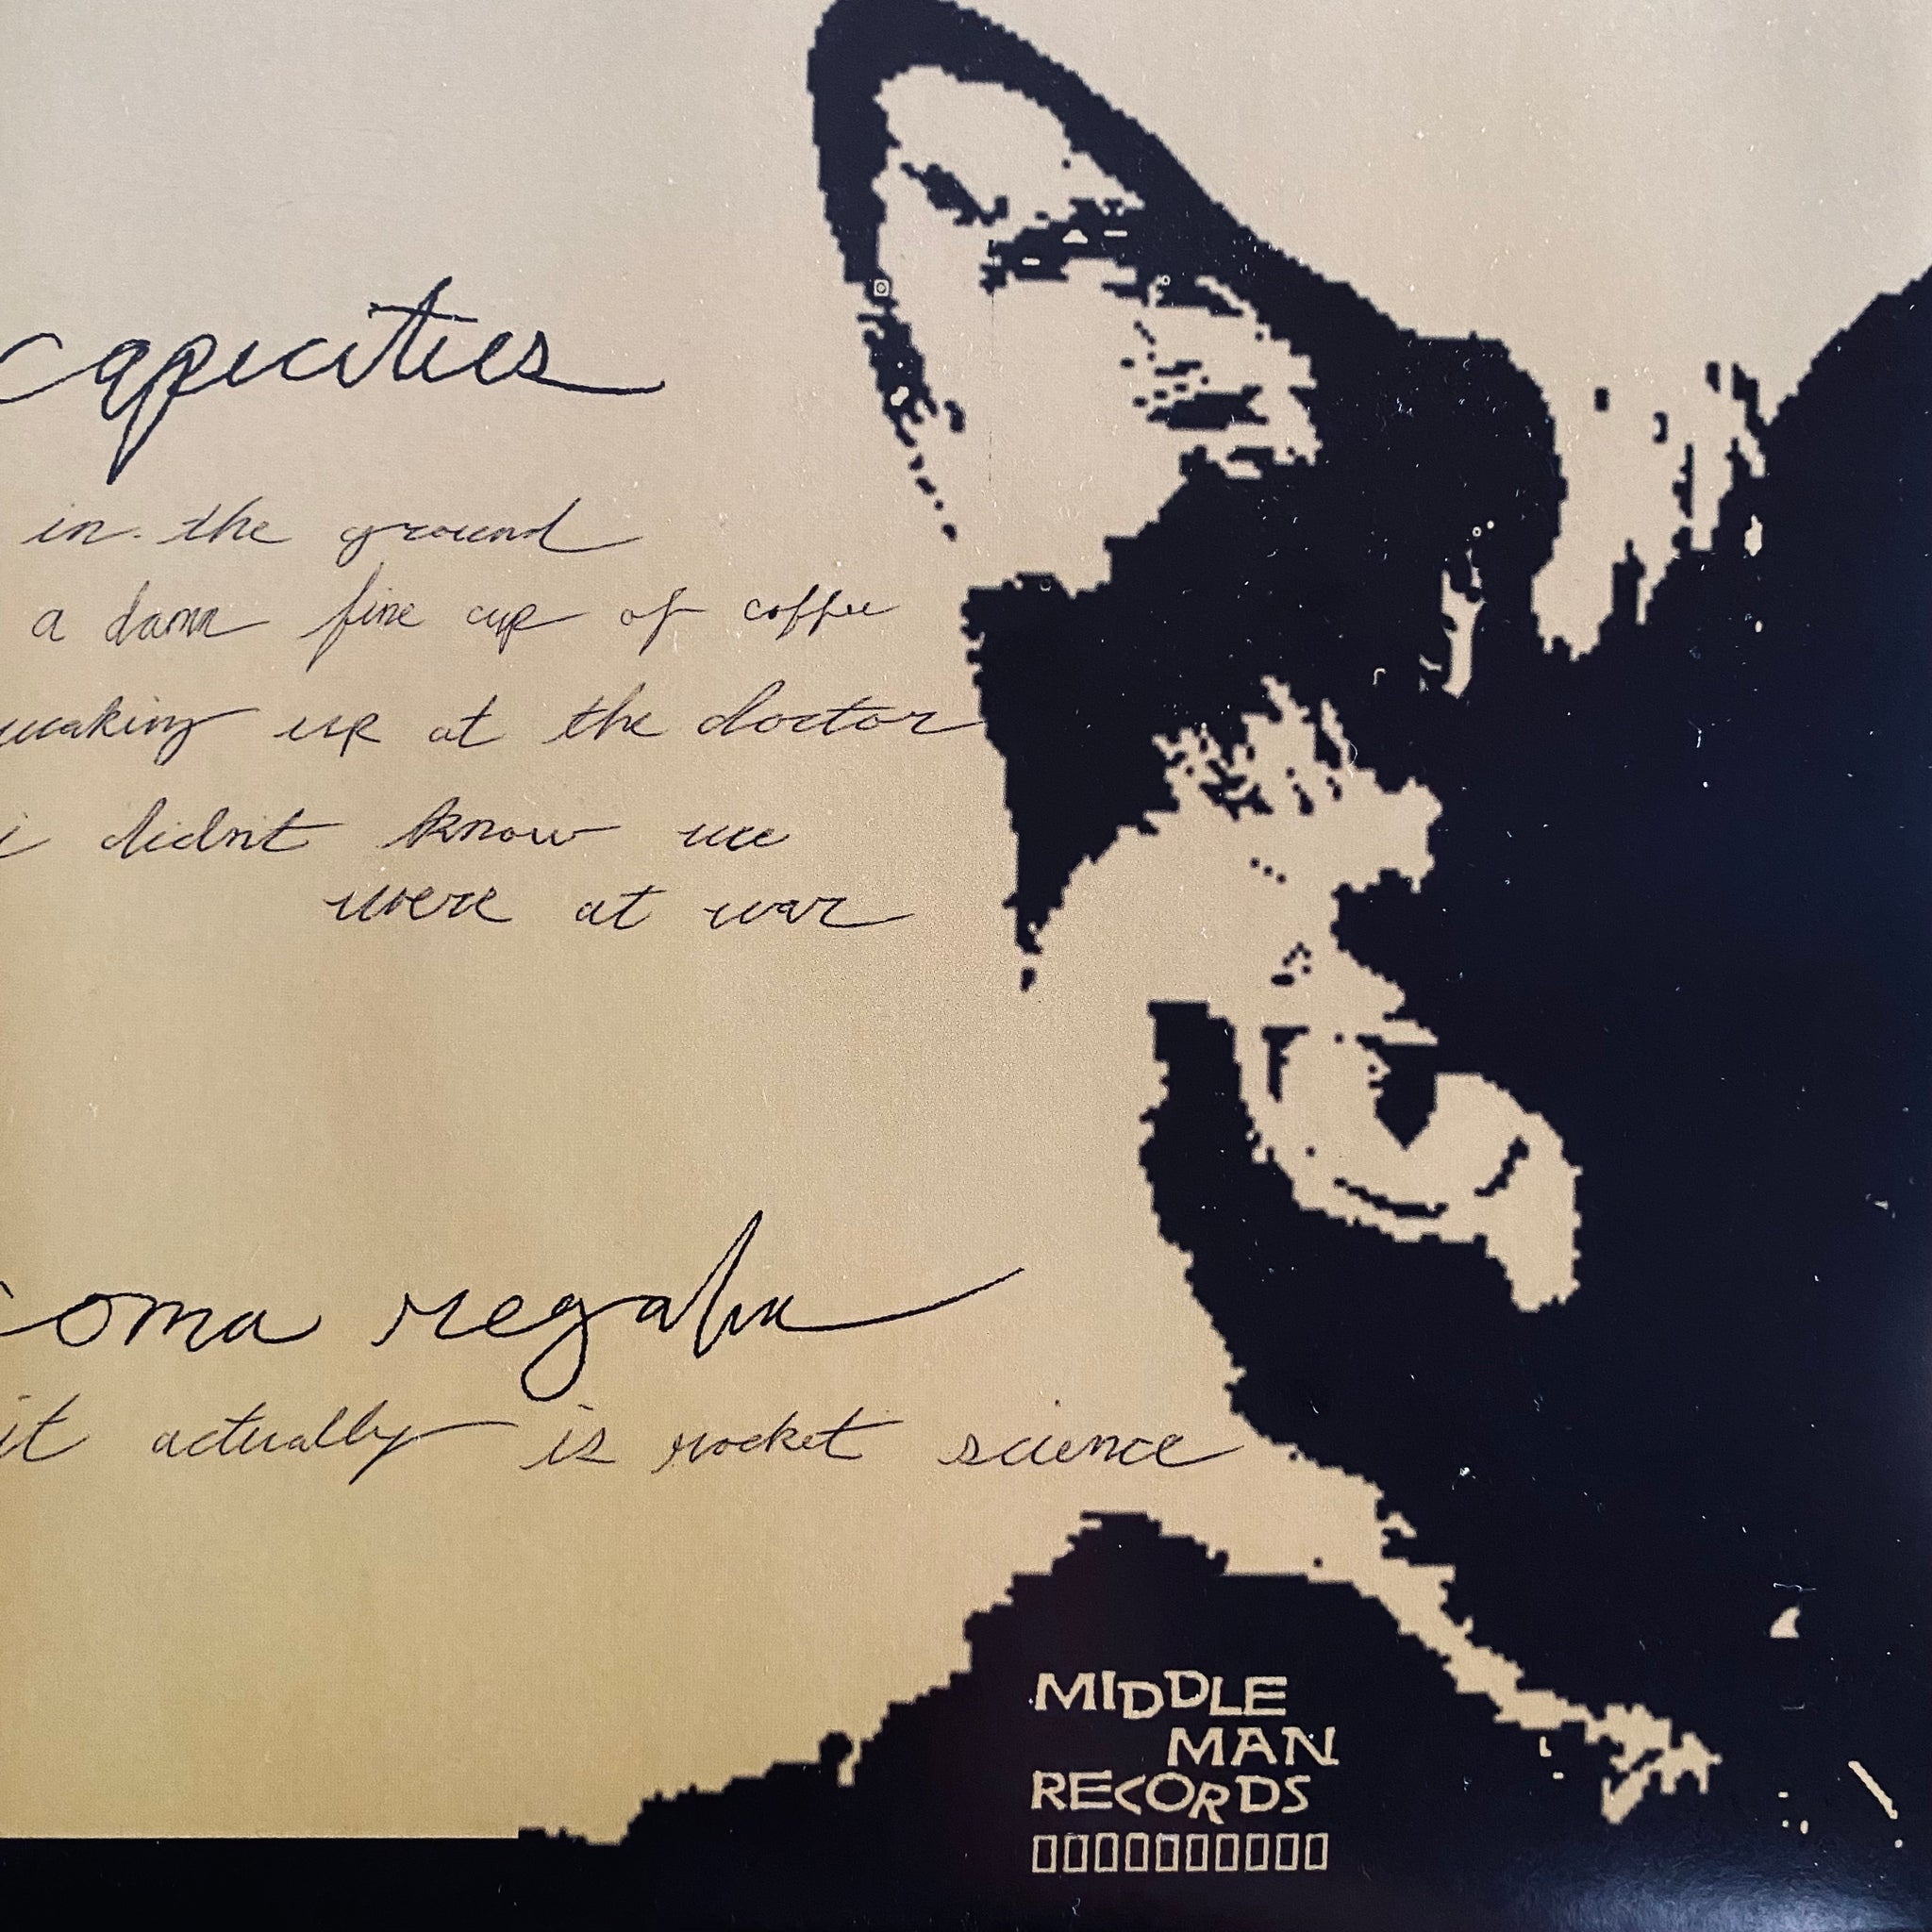 capacities
in the ground
a damn fine cup of coffee
waking up at the doctor
i didn't know we
were at war
coma regalia
it actually is rocket science
MIDDLE
MAN
RECORDS